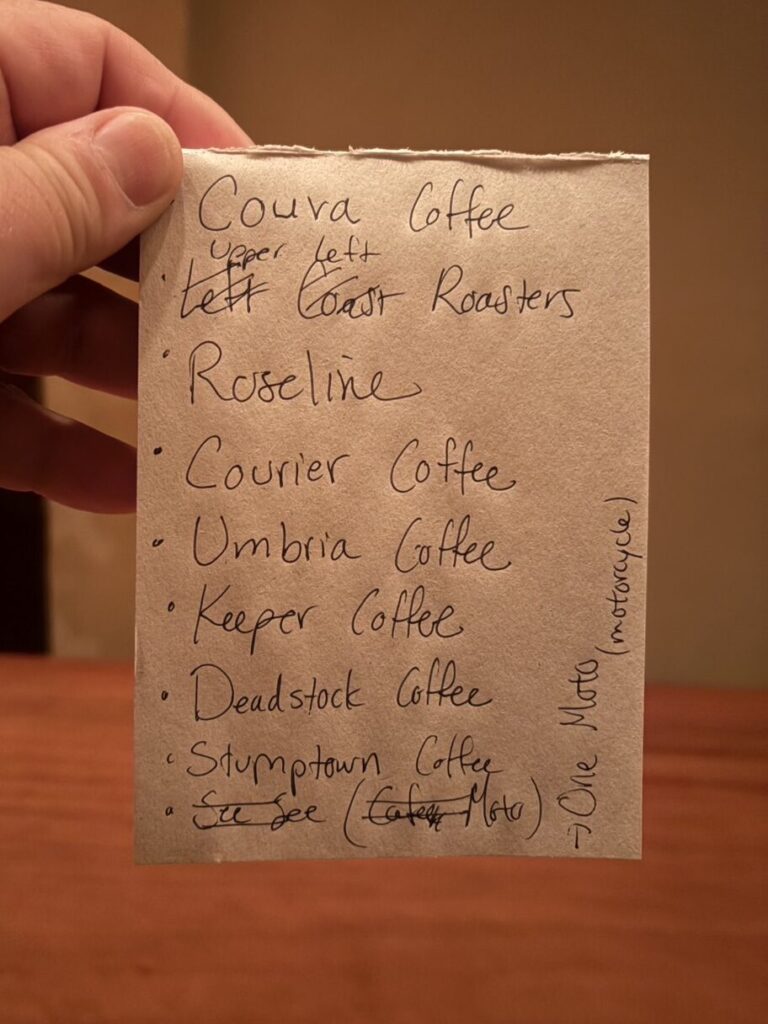 • Couva Coffee
Upper Left
• Left Coast Roasters
• Roseline
• Courier Coffee
• Umbria Coffee
• Keeper Coffee
• Deadstock Coffee
• Stumptown Coffee
• See See (Cafe Moto)
→ One Moto
(motorcycle)